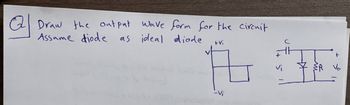 Q Draw the output wave form for the circuit
Assume diode as ideal diode
+Vi
-Vi
C
+ +
Vi R Vo
- -